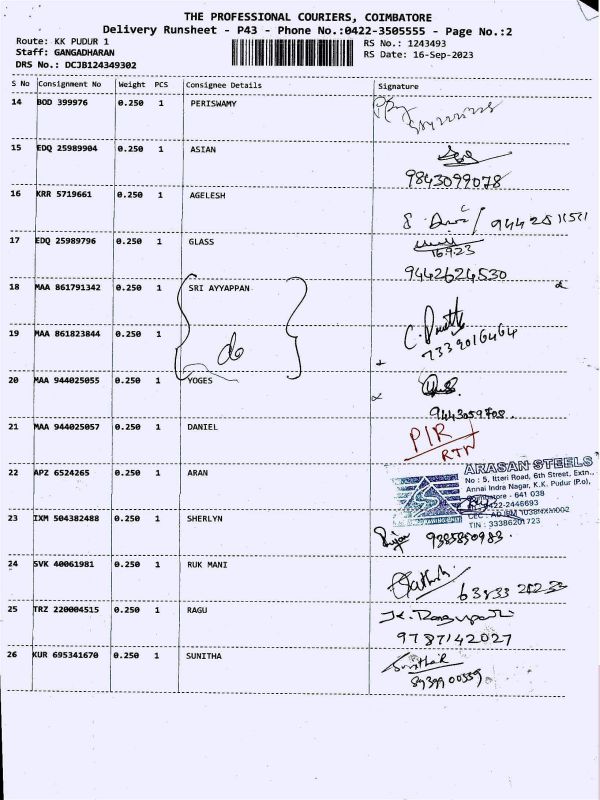 THE PROFESSIONAL COURIERS, COIMBATORE
Delivery Runsheet - P43 - Phone No.:0422-3505555 - Page No.:2
Route: KK PUDUR 1 RS No.: 1243493
Staff: GANGADHARAN RS Date: 16-Sep-2023
DRS No.: DCJB124349302
S No Consignment No Weight PCS Consignee Details Signature
14 BOD 399976 0.250 1 PERISWAMY
15 EDQ 25989904 0.250 1 ASIAN
9843099078
16 KRR 5719661 0.250 1 AGELESH
17 EDQ 25989796 0.250 1 GLASS
16.9.23
9442624530
18 MAA 861791342 0.250 1 SRI AYYAPPAN
19 MAA 861823844 0.250 1
do
7339016464
20 MAA 944025055 0.250 1 YOGES
9443059708.
21 MAA 944025057 0.250 1 DANIEL P/R
RTN
22 APZ 6524265 0.250 1 ARAN
ARASAN STEELS
No : 5, Itteri Road, 6th Street, Extn.,
Annai Indra Nagar, K.K. Pudur (P.o),
Coimbatore - 641 038
0422-2446693
TIN : 33386201723
23 IXM 504382488 0.250 1 SHERLYN
9385850983.
24 SVK 40061981 0.250 1 RUK MANI
Sathish
25 TRZ 220004515 0.250 1 RAGU
9787142027
26 KUR 695341670 0.250 1 SUNITHA
8939900559